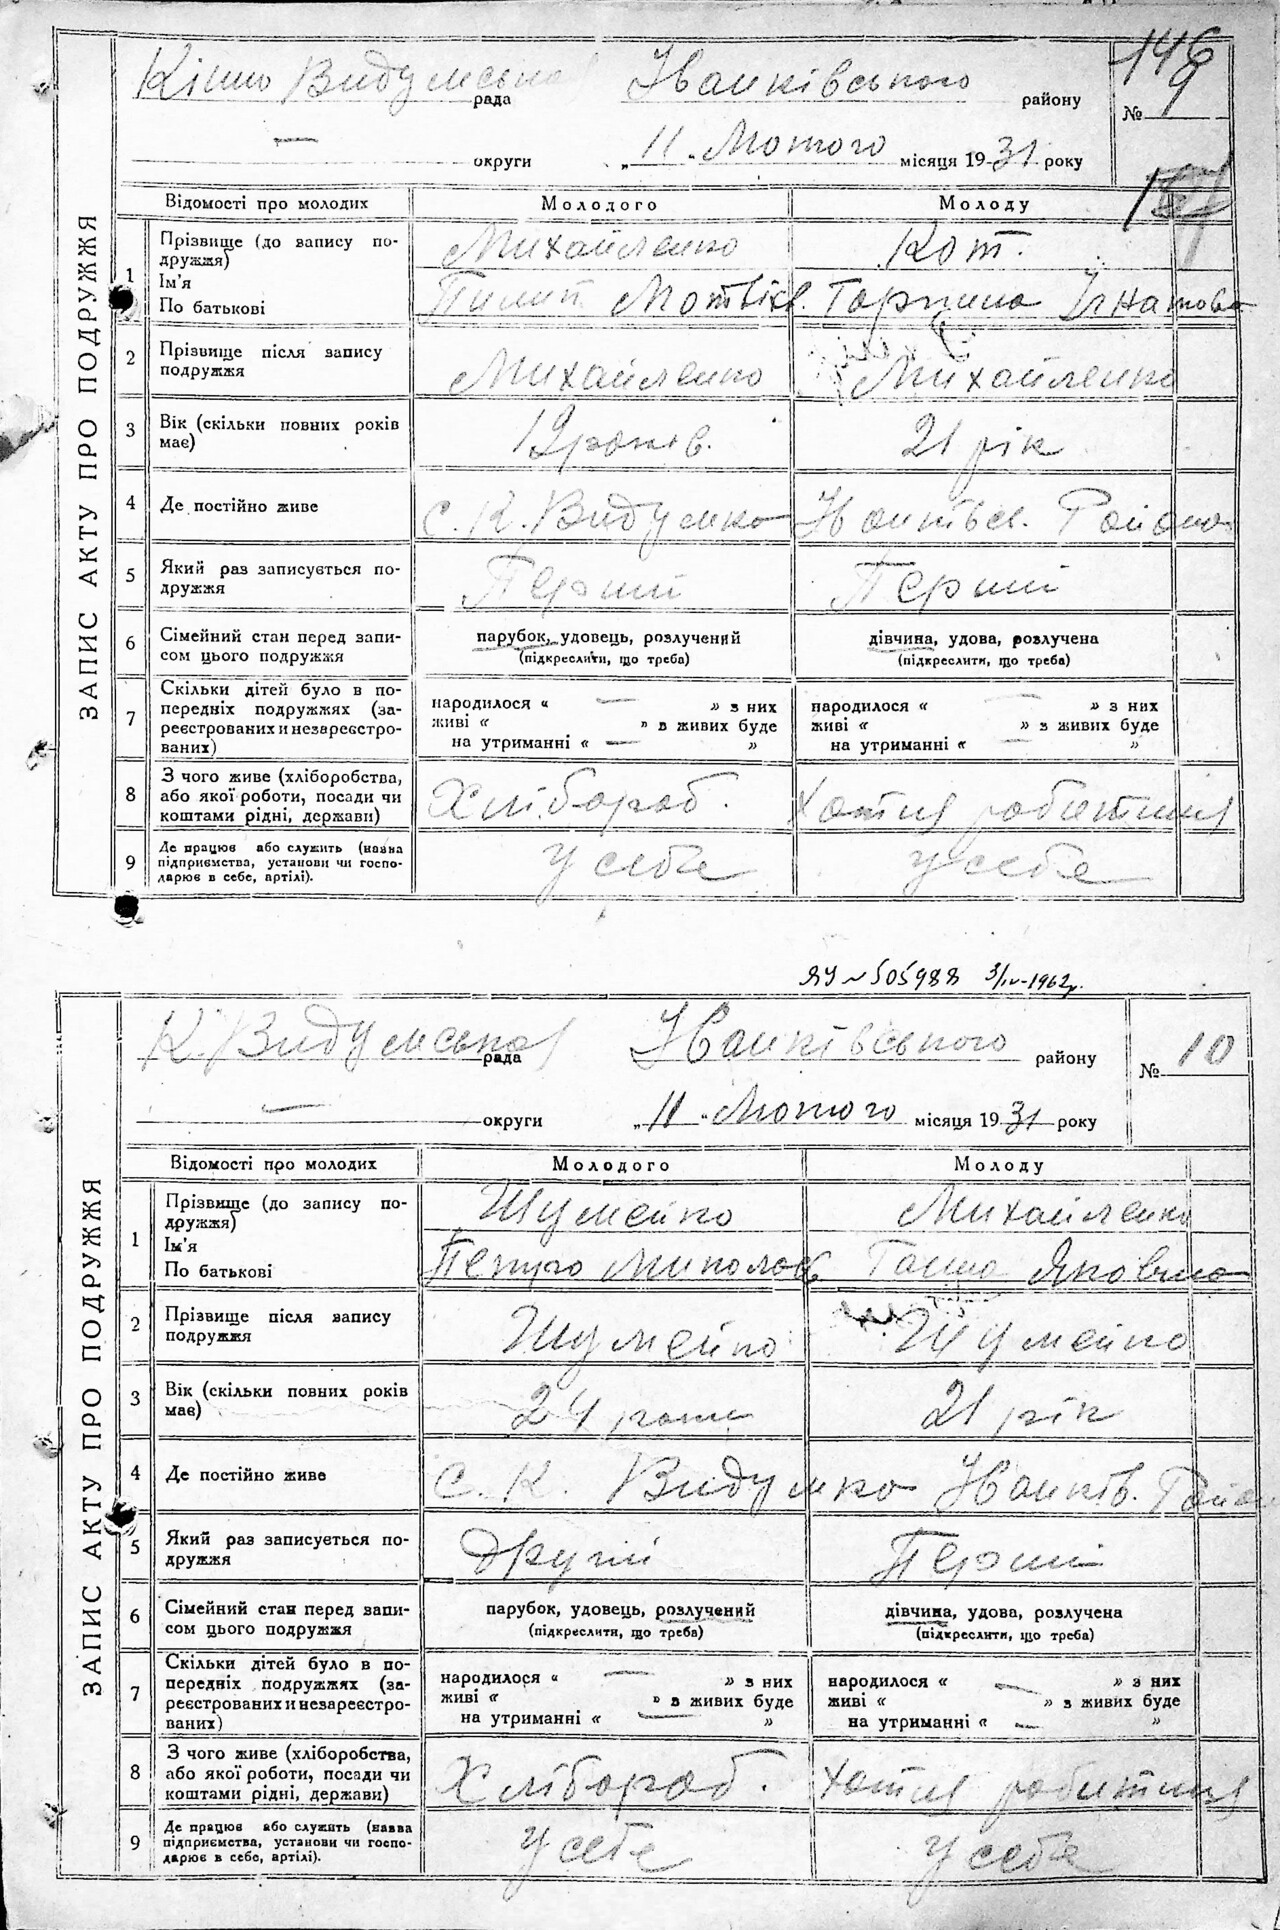 146
Кішно Видумська рада Іванківського району № 9
— округи „11" Лютого місяця 1931 року
ЗАПИС АКТУ ПРО ПОДРУЖЖЯ
Відомості про молодих Молодого Молоду
1 Прізвище (до запису по-
дружжя) Михайленко Кот.
Ім'я
По батькові Пилип Мотвієв. Горпина Ігнатова
2 Прізвище після запису
подружжя Михайленко Михайленко
3 Вік (скільки повних років
має) 19 років. 21 рік
4 Де постійно живе с. К. Видумка Іванківськ. Району
5 Який раз записується по-
дружжя Перший Перший
6 Сімейний стан перед запи-
сом цього подружжя парубок, удовець, розлучений дівчина, удова, розлучена
(підкреслити, що треба) (підкреслити, що треба)
7 Скільки дітей було в по-
передніх подружжях (за-
реєстрованих и незареєстро-
ваних) народилося « — » з них народилося « — » з них
живі « » в живих буде живі « » з живих буде
на утриманні « — » на утриманні « — »
8 З чого живе (хліборобства,
або якої роботи, посади чи
коштами рідні, держави) Хлібороб. Хатня робітниця
9 Де працює або служить (назва
підприємства, установи чи госпо-
дарює в себе, артілі). У себе У себе
ЯУ № 505988 3/IV-1962р.
К. Видумська рада Іванківського району № 10
— округи „11" Лютого місяця 1931 року
ЗАПИС АКТУ ПРО ПОДРУЖЖЯ
Відомості про молодих Молодого Молоду
1 Прізвище (до запису по-
дружжя) Шумейко Михайленко
Ім'я
По батькові Петро Миколаєв Ганна Яковлева
2 Прізвище після запису
подружжя Шумейко Шумейко
3 Вік (скільки повних років
має) 24 роки 21 рік
4 Де постійно живе С. К. Видумка Іванків. Район
5 Який раз записується по-
дружжя Другий Перший
6 Сімейний стан перед запи-
сом цього подружжя парубок, удовець, розлучений дівчина, удова, розлучена
(підкреслити, що треба) (підкреслити, що треба)
7 Скільки дітей було в по-
передніх подружжях (за-
реєстрованих и незареєстро-
ваних) народилося « — » з них народилося « — » з них
живі « » в живих буде живі « » з живих буде
на утриманні « — » на утриманні « — »
8 З чого живе (хліборобства,
або якої роботи, посади чи
коштами рідні, держави) Хлібороб. Хатня робітниця
9 Де працює або служить (назва
підприємства, установи чи госпо-
дарює в себе, артілі). У себе У себе